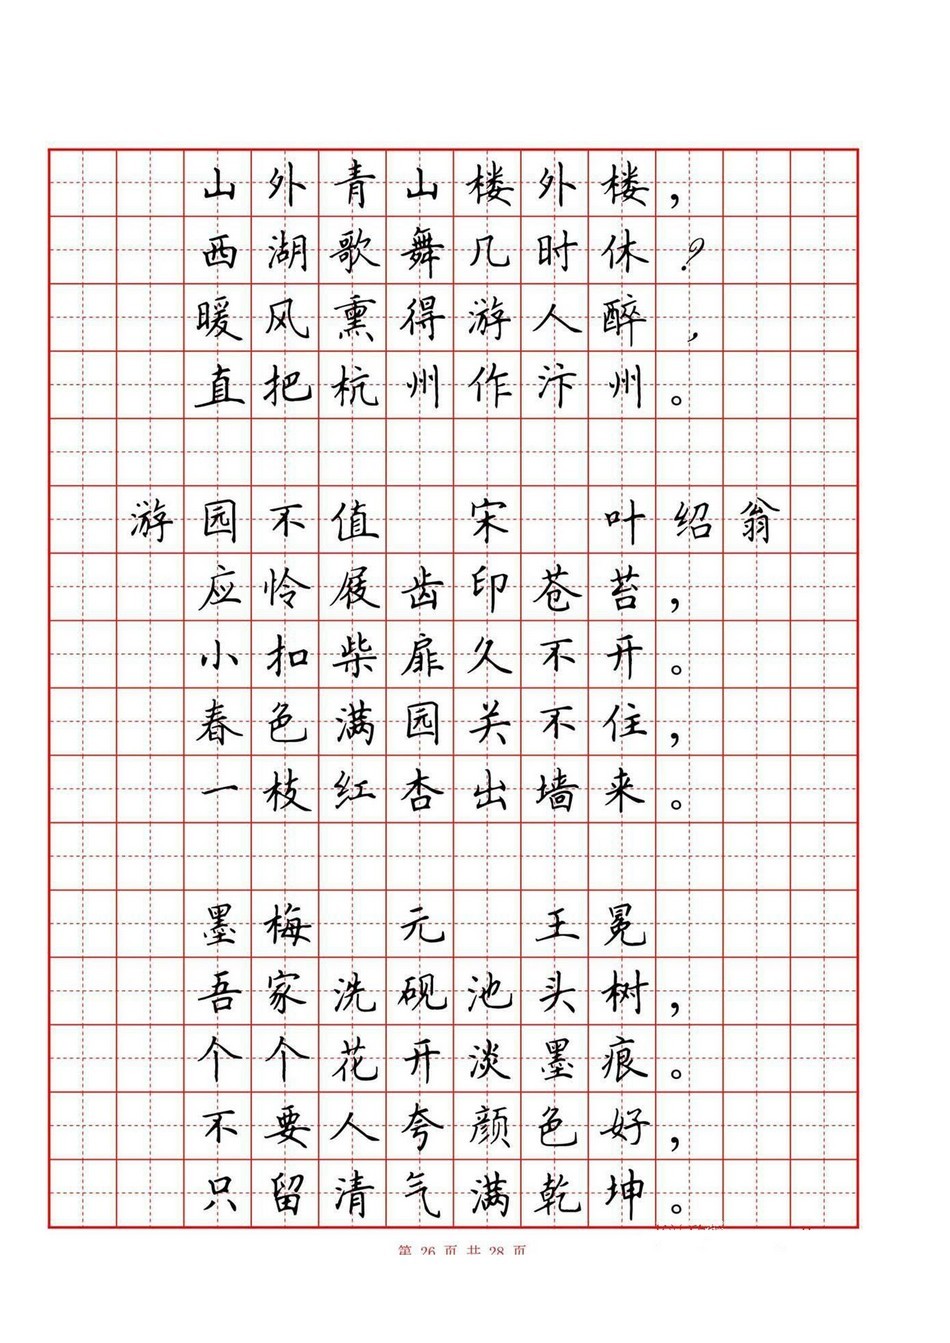 山外青山楼外楼，
西湖歌舞几时休？
暖风熏得游人醉，
直把杭州作汴州。
游园不值 宋 叶绍翁
应怜屐齿印苍苔，
小扣柴扉久不开。
春色满园关不住，
一枝红杏出墙来。
墨梅 元 王冕
吾家洗砚池头树，
个个花开淡墨痕。
不要人夸颜色好，
只留清气满乾坤。
第 26 页 共 28 页